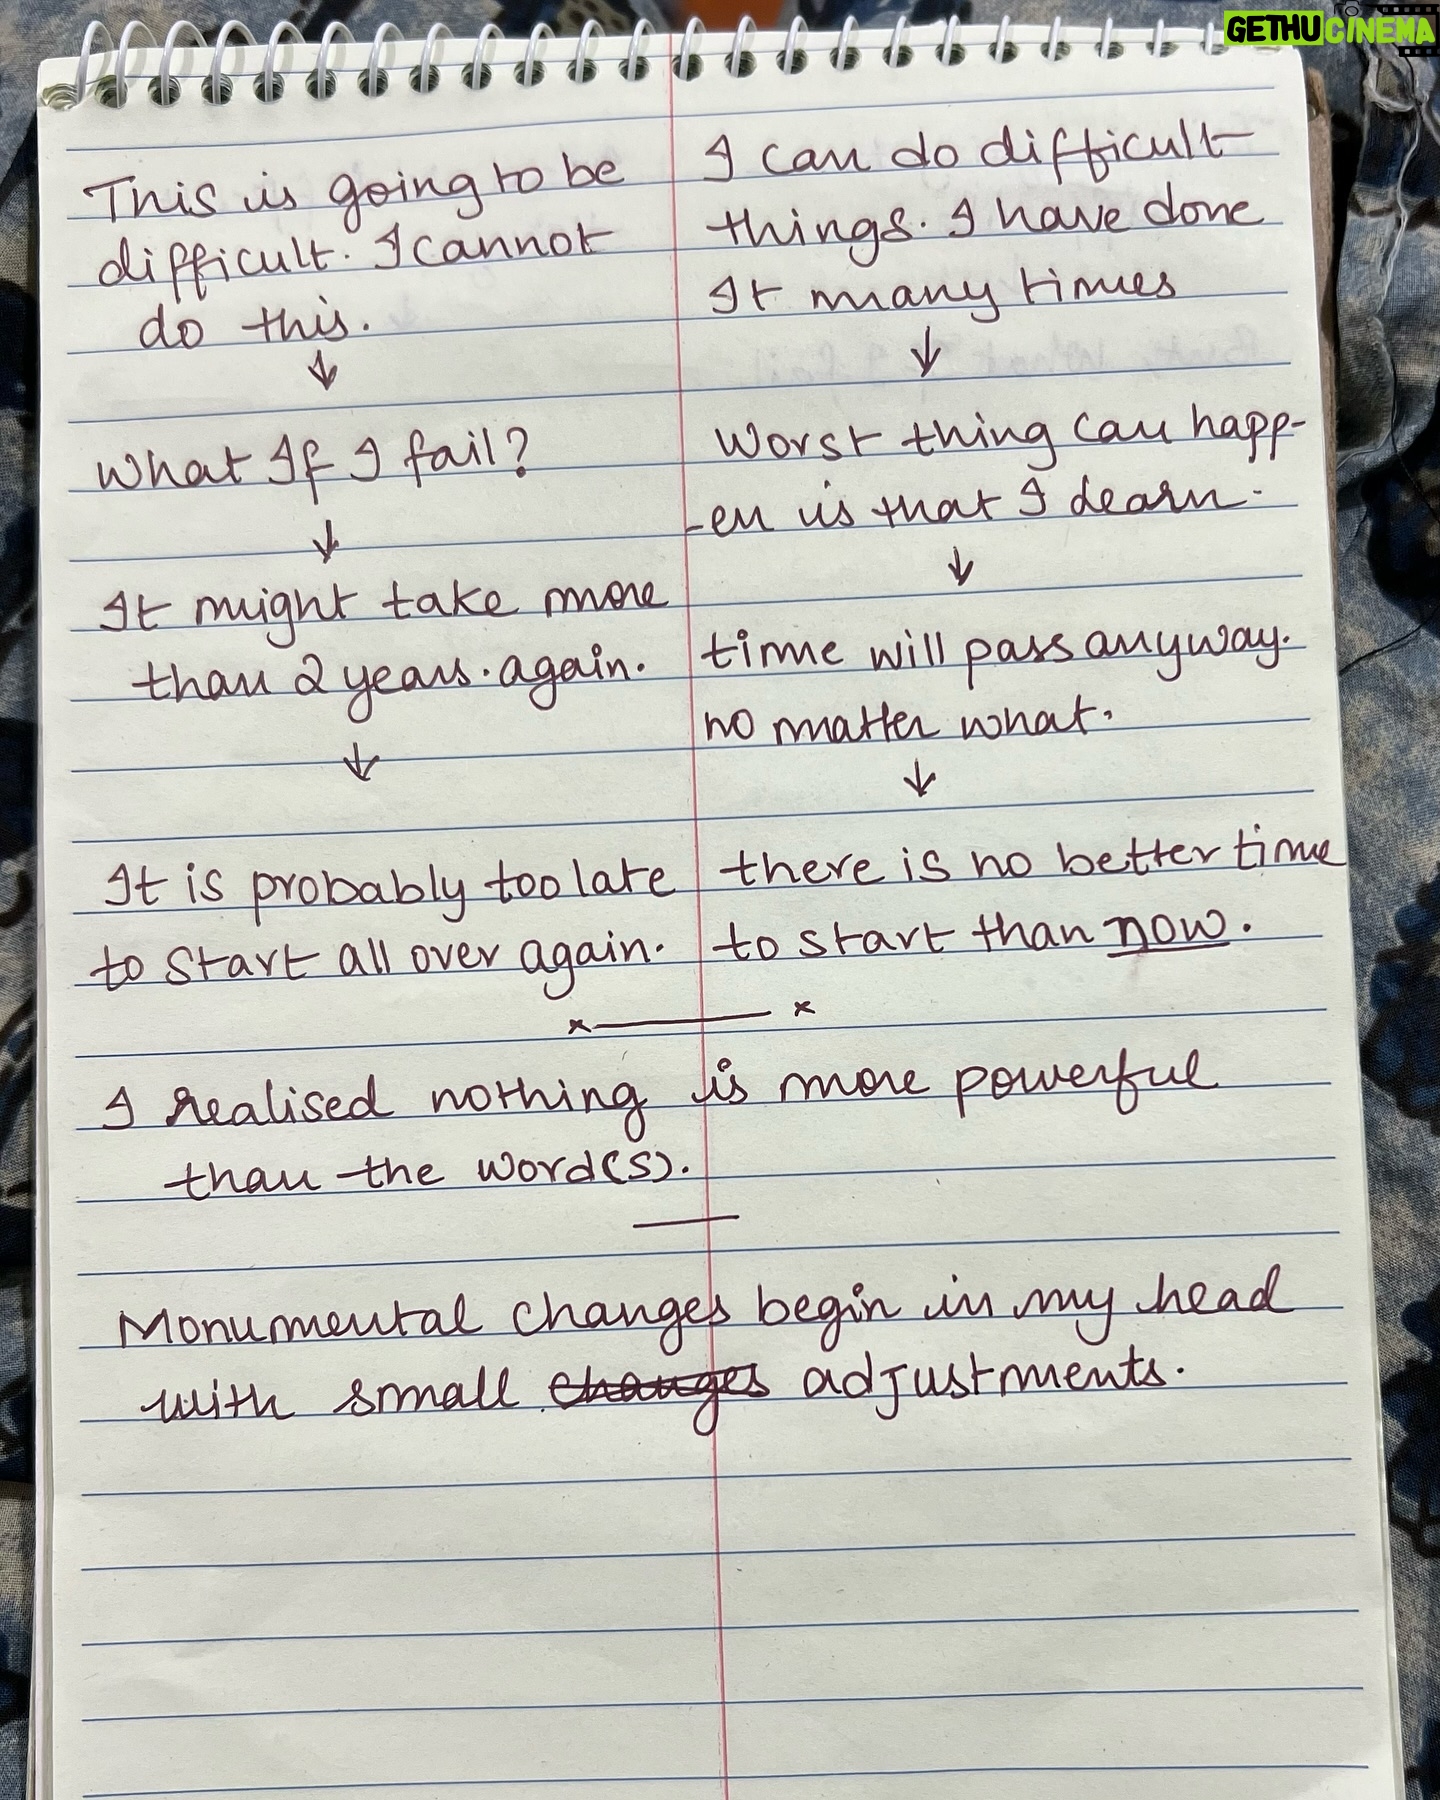 GETHUCINEMA
This is going to be
difficult. I cannot
do this.
↓
What If I fail?
↓
It might take more
than 2 years. again.
↓
It is probably too late
to start all over again.
I can do difficult
things. I have done
It many times
↓
Worst thing can happ-
-en is that I learn.
↓
time will pass anyway.
no matter what.
↓
there is no better time
to start than now.
x———x
I realised nothing is more powerful
than the word(s).
Monumental changes begin in my head
with small changes adjustments.